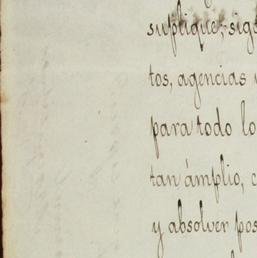 suplique, siga
tos, agencias
para todo lo
tan ámplio, c
y absolver pos